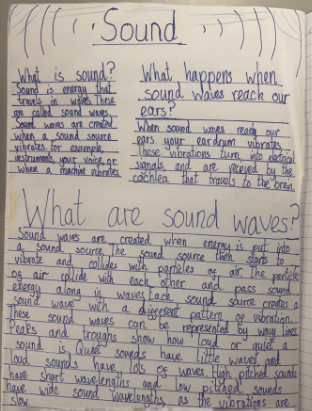 Sound
What is sound?
Sound is energy that
travels in waves. These
are called sound waves.
Sound waves are created
when a sound source
vibrates, for example,
instruments, your voice or
when a machine vibrates
What happens when
sound waves reach our
ears?
When sound waves reach our
ears your eardrum vibrates.
These vibrations turn into electrical
signals and are recieved by the
cochlea that travels to the brain.
What are sound waves?
Sound waves are created when energy is put into
a sound source. The sound source then starts to
vibrate and collides with particles of air. The particles
of air collide with each other and pass sound
energy along in waves. Each sound source creates a
sound wave with a different pattern of vibration.
These sound waves can be represented by wavy lines.
Peaks and troughs show how loud or quiet a
sound is. Quiet sounds have little waves and
loud sounds have lots of waves. High pitched sounds
have short wavelengths and low pitched sounds
have wide sound wavelengths, as the vibrations are
slow.